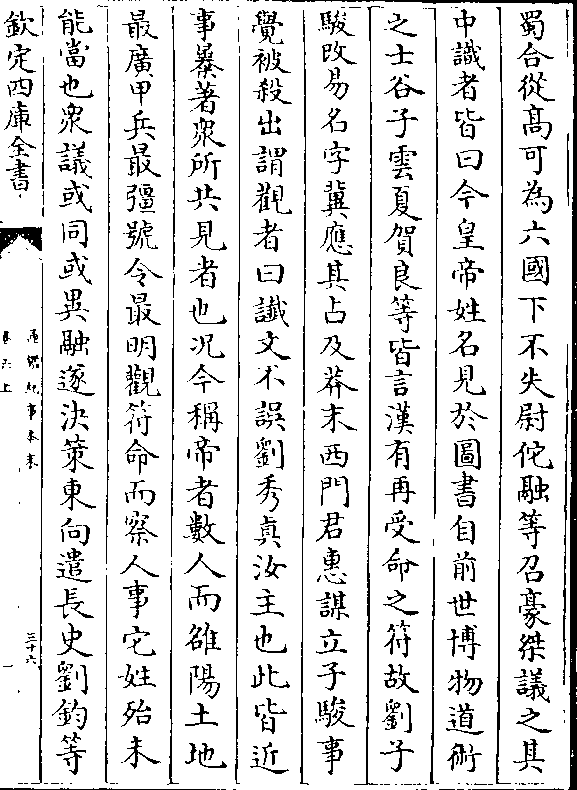 蜀合從髙可為六國下不失尉佗融等召豪桀議之其
中識者皆曰今皇帝姓名見於圖書自前世博物道術
之士谷子雲夏賀良等皆言漢有再受命之符故劉子
駿改易名字冀應其占及莽末西門君惠謀立子駿事
覺被殺出謂觀者曰讖文不誤劉秀真汝主也此皆近
事暴著衆所共見者也况今稱帝者數人而雒陽土地
最廣甲兵最彊號令最明觀符命而察人事它姓殆未
能當也衆議或同或異融遂決策東向遣長史劉鈞等
欽定四庫全書
通鑑紀事本末
卷六上
三十六